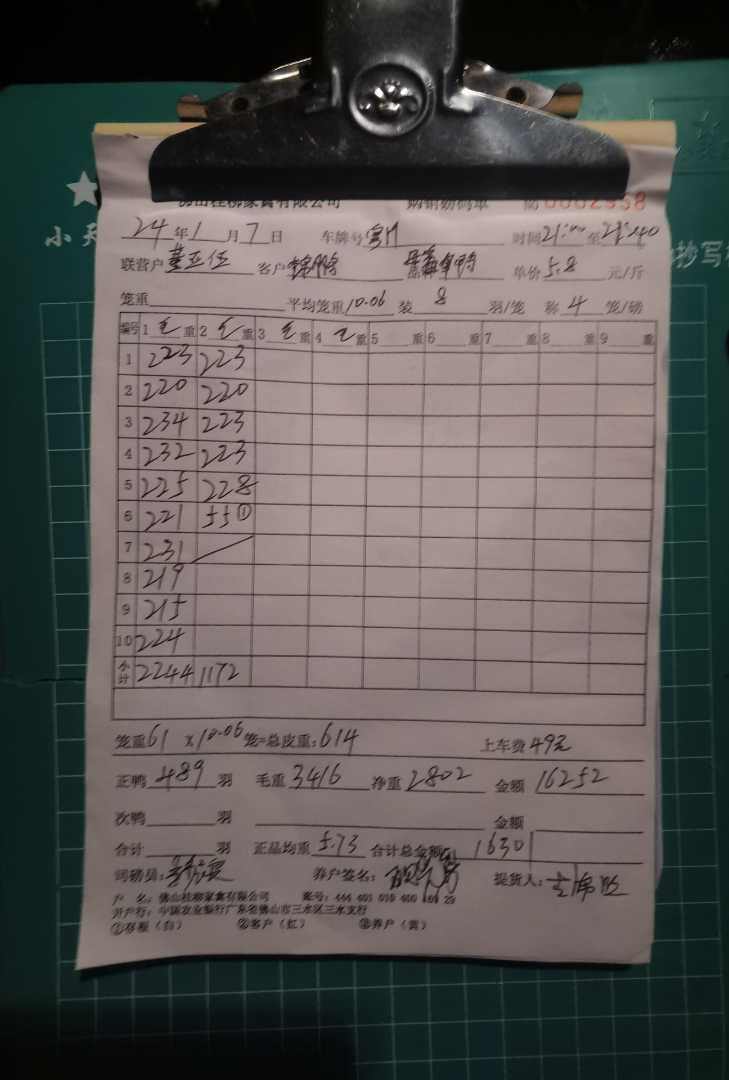 佛山桂柳家禽有限公司 购销磅码单 № 0002938
小天
24年1月7日 车牌号 时间21:00至21:40
抄写
联营户 黄亚伍 客户 锦鹏 单价5.8元/斤
笼重 平均笼重10.06 装 8 羽/笼 称 4 笼/磅
编号 1 毛重 2 毛重 3 毛重 4 毛重 5 重 6 重 7 重 8 重 9 重
1 223 223
2 220 220
3 234 223
4 232 223
5 225 228
6 221 55①
7 231
8 219
9 215
10 224
小计 2244 1172
笼重61 x10.06笼=总皮重:614 上车费49元
正鸭 489 羽 毛重 3416 净重 2802 金额 16252
次鸭 羽 金额
合计 羽 正品均重 5.73 合计总金额 16301
司磅员: 养户签名: 提货人:
户 名:佛山桂柳家禽有限公司 账号:
开户行:中国农业银行广东省佛山市三水区三水支行
①存根(白) ②客户(红) ③养户(黄)